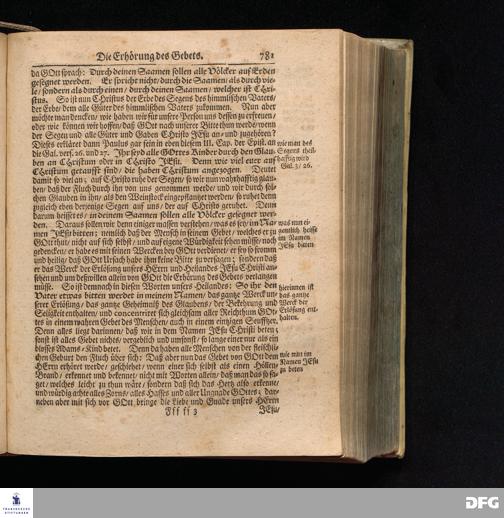 Die Erhörung des Gebets. 781
da GOtt sprach: Durch deinen Saamen sollen alle Völcker auf Erden
gesegnet werden. Er spricht nicht/ durch die Saamen/ als durch vie-
le/ sondern als durch einen/ durch deinen Saamen/ welches ist Chri-
stus. So ist nun Christus der Erbe des Segens des himmlischen Vaters/
der Erbe/ dem alle Güter des himmlischen Vaters zukommen. Nun aber
möchte man dencken/ wie haben wir für unsere Person uns dessen zu erfreuen/
oder wie können wir hoffen/ daß GOtt nach unserer Bitte thun werde/ wenn
der Segen und alle Güter und Gaben Christo JEsu an- und zugehören?
Dieses erkläret dann Paulus gar fein in eben diesem III. Cap. der Epist. an
die Gal. vers. 26. und 27. Ihr seyd alle GOttes Kinder durch den Glau-
ben an Christum oder in Christo JEsu. Denn wie viel eurer auf
Christum getaufft sind/ die haben Christum angezogen. Deutet
damit so viel an; auf Christo ruhe der Segen/ so wir nun wahrhafftig glau-
ben/ daß der Fluch durch ihn von uns genommen werde/ und wir durch sol-
chen Glauben in ihn/ als den Weinstock eingepflantzet werden/ so ruhet denn
zugleich eben derjenige Segen auf uns/ der auf Christo geruhet. Denn
darum heisset es/ in deinem Saamen sollen alle Völcker gesegnet wer-
den. Daraus sollen wir denn einiger massen verstehen/ was es sey/ im Na-
men JEsu bitten; nemlich daß der Mensch in seinem Gebet/ welches er zu
GOtt thut/ nicht auf sich selbst/ und auf eigene Würdigkeit sehen müsse/ noch
gedencken/ er habe es mit seinen Wercken bey GOtt verdienet/ er sey so fromm
und heilig/ daß GOtt Ursach habe ihm keine Bitte zu versagen; sondern daß
er das Werck der Erlösung unsers HErrn und Heilandes JEsu Christi an-
sehen und um deßwillen allein von GOtt die Erhörung des Gebets verlangen
müsse. So ist demnach in diesen Worten unsers Heilandes: So ihr den
Vater etwas bitten werdet in meinem Namen/ das gantze Werck un-
serer Erlösung/ das gantze Geheimniß des Glaubens/ der Bekehrung und
Seligkeit enthalten/ und concentriret sich gleichsam aller Reichthum GOt-
tes in einem wahren Gebet des Menschen/ auch in einem eintzigen Seufftzer.
Denn alles liegt darinnen/ daß wir in dem Namen JEsu Christi beten;
sonst ist alles Gebet nichts/ vergeblich und umsonst/ so lange einer nur als ein
blosses Adams-Kind betet. Denn da haben alle Menschen von der fleischli-
chen Geburt den Fluch über sich: Daß aber nun das Gebet von GOtt dem
HErrn erhöret werde/ geschiehet/ wenn einer sich selbst als einen Höllen-
Brand/ erkennet und bekennet/ nicht mit Worten allein/ daß man das so sa-
get/ welches leicht zu thun wäre/ sondern daß sich das Hertz also erkenne/
und würdig achte alles Zorns/ alles Hasses und aller Ungnade GOttes; dar-
neben aber mit sich vor GOtt bringe die Liebe und Gnade unsers HErrn
JEsu/
wie man des
Segens theil-
hafftig wird
Gal. 3/ 26.
was nun ei-
gentlich heisse
im Namen
JEsu bitten
hierinnen ist
das gantze
Werck der
Erlösung ent-
halten.
wie man im
Namen JEsu
zu beten
FRANCKESCHE
STIFTUNGEN
DFG